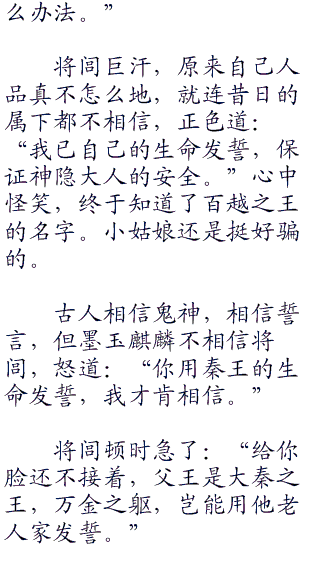 么办法。”
将闾巨汗，原来自己人
品真不怎么地，就连昔日的
属下都不相信，正色道：
“我已自己的生命发誓，保
证神隐大人的安全。”心中
怪笑，终于知道了百越之王
的名字。小姑娘还是挺好骗
的。
古人相信鬼神，相信誓
言，但墨玉麒麟不相信将
闾，怒道：“你用秦王的生
命发誓，我才肯相信。”
将闾顿时急了：“给你
脸还不接着，父王是大秦之
王，万金之躯，岂能用他老
人家发誓。”